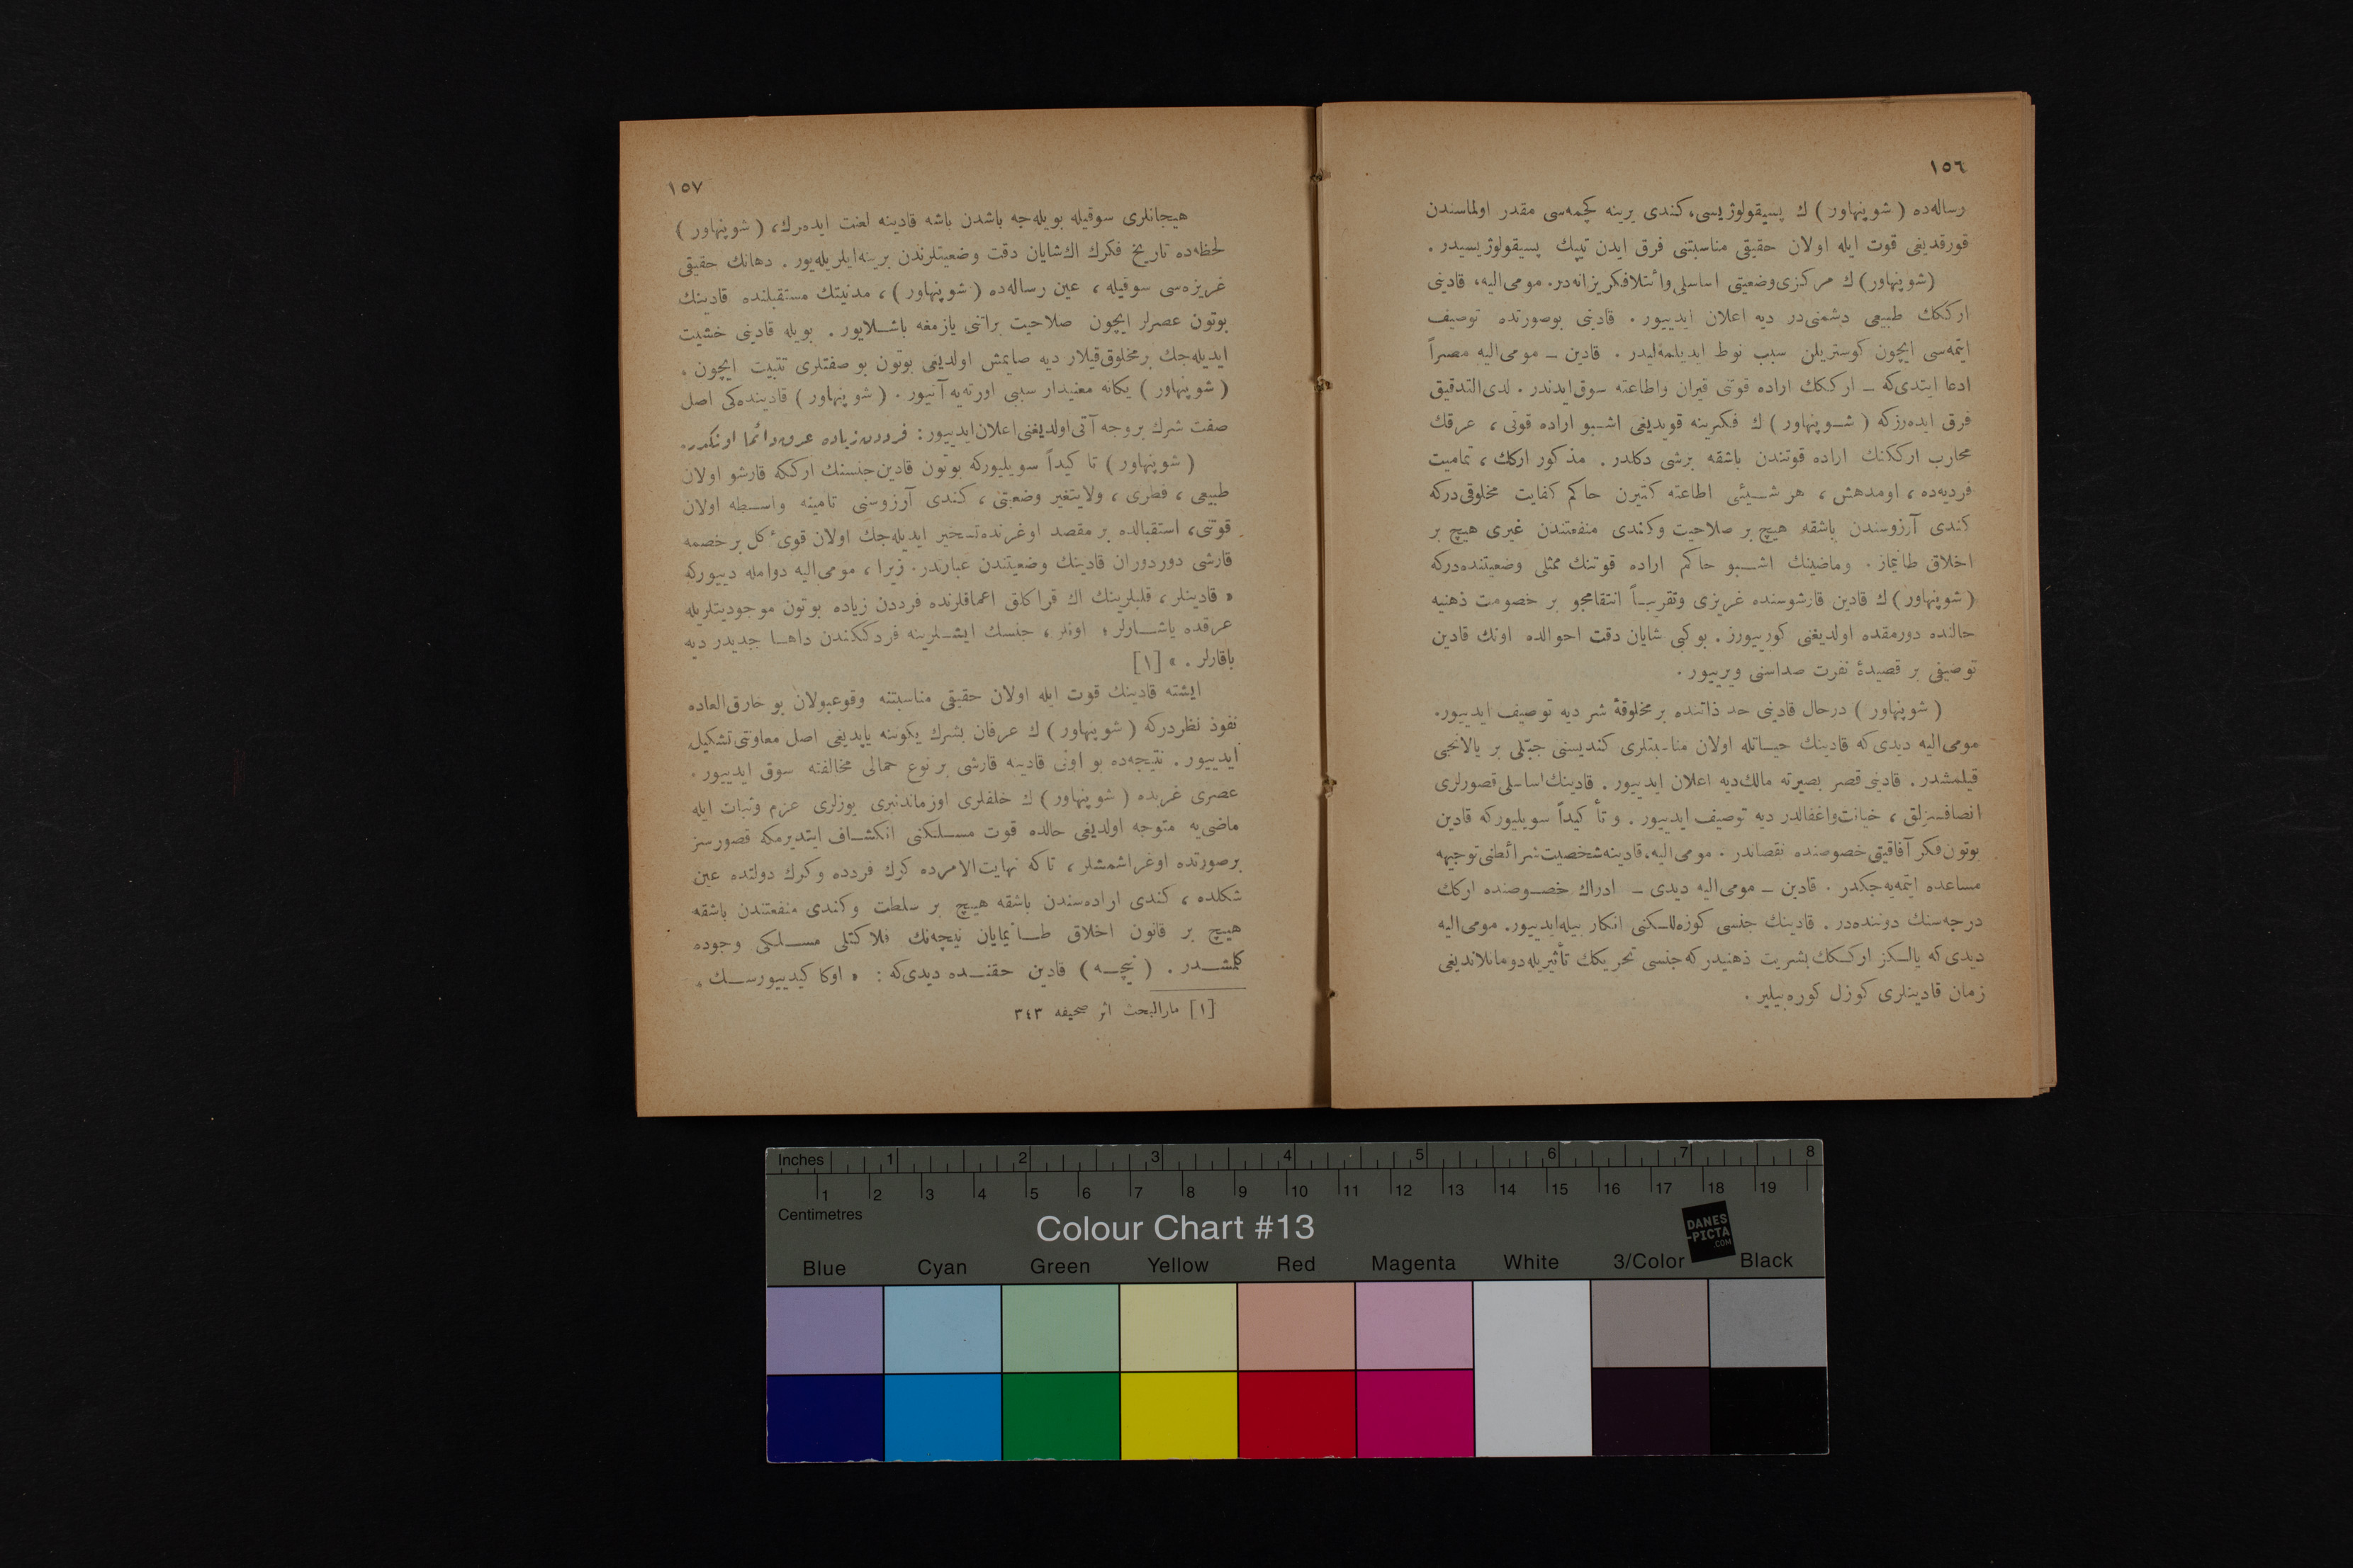 ١٥٦
رساله‌ده (شوپنهاور) ك پسيقولوژيسى، كندى يرينه كچمه‌سى مقدر اولماسندن
قورقديغى قوت ايله اولان حقيقى مناسبتنى فرق ايدن تيپك پسيقولوژيسيدر.
(شوپنهاور) ك مركزى وضعيتى اساسلى وائتلافكريزانه‌در. مومى‌اليه، قادينى
اركك‌ك طبيعى دشمنى‌در ديه اعلان ايدييور. قادينى بوصورتده توصيف
ايتمه‌سى ايچون كوستريلن سبب نوط ايديلمه‌ليدر. قادين ـ مومى‌اليه مصراً
ادعا ايتدى‌كه ـ اركك‌ك اراده قوتنى قيران واطاعته سوق‌ايدندر. لدى‌التدقيق
فرق ايده‌رزكه (شوپنهاور) ك فكرينه قويديغى اشبو اراده قوتى، عرقك
محارب اركك‌نك اراده قوتندن باشقه برشى دكلدر. مذكور اركك، تماميت
فرديه‌ده، اومدهش، هر شيئى اطاعته كتيرن حاكم كفايت مخلوقى‌دركه
كندى آرزوسندن باشقه هيچ بر صلاحيت وكندى منفعتندن غيرى هيچ بر
اخلاق طانيماز. وماضينك اشبو حاكم اراده قوتنك ممثلى وضعيتنده‌دركه
(شوپنهاور) ك قادين قارشوسنده غريزى وتقريباً انتقامجو بر خصومت ذهنيه
حالنده دورمقده اولديغنى كورييورز. بوكبى شايان دقت احوالده اونك قادين
توصيفى بر قصيدهٔ نفرت صداسنى ويرييور.
(شوپنهاور) درحال قادينى حد ذاتنده بر مخلوقهٔ شر ديه توصيف ايدييور.
مومى‌اليه ديدى‌كه قادينك حياتله اولان مناسبتلرى كنديسنى جبلّى بر يالانجى
قيلمشدر. قادينى قصر بصيرته مالك‌ديه اعلان ايدييور. قادينك‌اساسلى قصورلرى
انصافسزلق، خيانت‌واغفالدر ديه توصيف ايدييور. و تأكيداً سويليوركه قادين
بوتون فكر آفاقيتى خصوصنده نقصاندر. مومى‌اليه، قادينه‌شخصيت‌شرائطنى‌توجيهه
مساعده ايتمه‌يه‌جكدر. قادين ـ مومى‌اليه ديدى ـ ادراك خصوصنده اركك
درجه‌سنك دوننده‌در. قادينك جنسى كوزه‌للكنى انكار بيله‌ايدييور. مومى‌اليه
ديدى‌كه يالكز اركك‌ك بشريت ذهنيدركه جنسى تحريكك تأثيريله‌دومانلانديغى
زمان قادينلرى كوزل كوره‌بيلير.
١٥٧
هيجانلرى سوقيله بويله‌جه باشدن باشه قادينه لعنت ايده‌رك، (شوپنهاور)
لحظه‌ده تاريخ فكرك اك‌شايان دقت وضعيتلرندن برينه‌ايلريله‌يور. دهانك حقيقى
غريزه‌سى سوقيله، عين رساله‌ده (شوپنهاور)، مدنيتك مستقبلنده قادينك
بوتون عصرلر ايچون صلاحيت براتنى يازمغه باشلايور. بويله قادينى خشيت
ايديله‌جك برمخلوق‌قيلار ديه صايمش اولديغى بوتون بو صفتلرى تثبيت ايچون،
(شوپنهاور) يكانه معنيدار سببى اورته‌يه آتييور. (شوپنهاور) قادينده‌كى اصل
صفت شرك بروجه آتى‌اولديغنى‌اعلان‌ايدييور: فرددن زياده عرق دائما اونكدر.
(شوپنهاور) تا كيداً سويليوركه بوتون قادين‌جنسنك اركك‌ه قارشو اولان
طبيعى، فطرى، ولايتغير وضعيتى، كندى آرزوسنى تامينه واسطه اولان
قوتنى، استقبالده بر مقصد اوغرنده‌تسخير ايديله‌جك اولان قوى‌كل بر خصمه
قارشى دوردوران قادينك وضعيتندن عبارتدر. زيرا، مومى‌اليه دوامله دييوركه
« قادينلر، قلبلرينك اك قراكلق اعماقلرنده فرددن زياده بوتون موجوديتلريله
عرقده ياشارلر؛ اونلر، جنسك ايشلرينه فردككندن داها جديدر ديه
باقارلر. » [١]
ايشته قادينك قوت ايله اولان حقيقى مناسبتنه وقوعبولان بو خارق‌العاده
نفوذ نظردركه (شوپنهاور) ك عرفان بشرك يكوننه ياپديغى اصل معاونتى تشكيل
ايدييور. نتيجه‌ده بو اونى قادينه قارشى بر نوع حمالى مخالفته سوق ايدييور.
عصرى غربده (شوپنهاور) ك خلفلرى اوزماندنبرى يوزلرى عزم وثبات ايله
ماضى‌يه متوجه اولديغى حالده قوت مسلكنى انكشاف ايتديرمكه قصورسز
برصورتده اوغراشمشلر، تاكه نهايت‌الامرده كرك فردده وكرك دولتده عين
شكلده، كندى اراده‌سندن باشقه هيچ بر سلطت وكندى منفعتندن باشقه
هيچ بر قانون اخلاق طانيمايان نيچه‌نك فلاكتلى مسلكى وجوده
كلمشدر. (نيچه) قادين حقنده ديدى‌كه: « اوكا كيدييورسك،
[١] مارالبحث اثر صحيفه ٣٤٣
Inches 1 2 3 4 5 6 7 8
1 2 3 4 5 6 7 8 9 10 11 12 13 14 15 16 17 18 19
Centimetres
Colour Chart #13
DANES
-PICTA
.COM
Blue Cyan Green Yellow Red Magenta White 3/Color Black